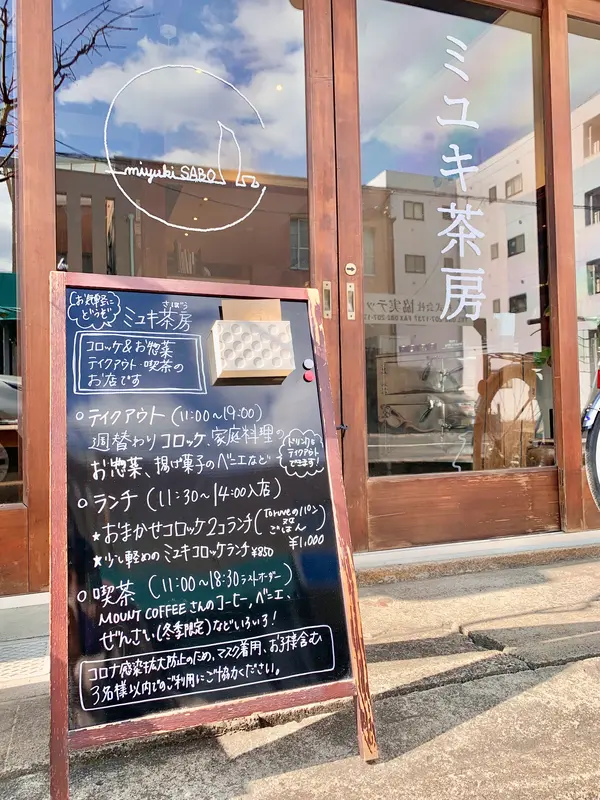 miyuki SABO
ミユキ茶房
お気軽に
どうぞ
さぼう
ミユキ茶房
コロッケ&お惣菜
テイクアウト・喫茶の
お店です
○テイクアウト(11:00~19:00)
週替わりコロッケ、家庭料理の
お惣菜、揚げ菓子のベニエなど
ドリンクも
テイクアウト
できます!
○ランチ(11:30~14:00入店)
★おまかせコロッケ2コランチ(Toruneのパン
又は
ごはん)
¥1,000
★少し軽めのミユキコロッケランチ¥850
○喫茶(11:00~18:30ラストオーダー)
MOUNT COFFEEさんのコーヒー,ベニエ、
ぜんざい(冬季限定)などいろいろ!
コロナ感染拡大防止のため、マスク着用、お子様含む
3名様以内でのご利用にご協力ください。